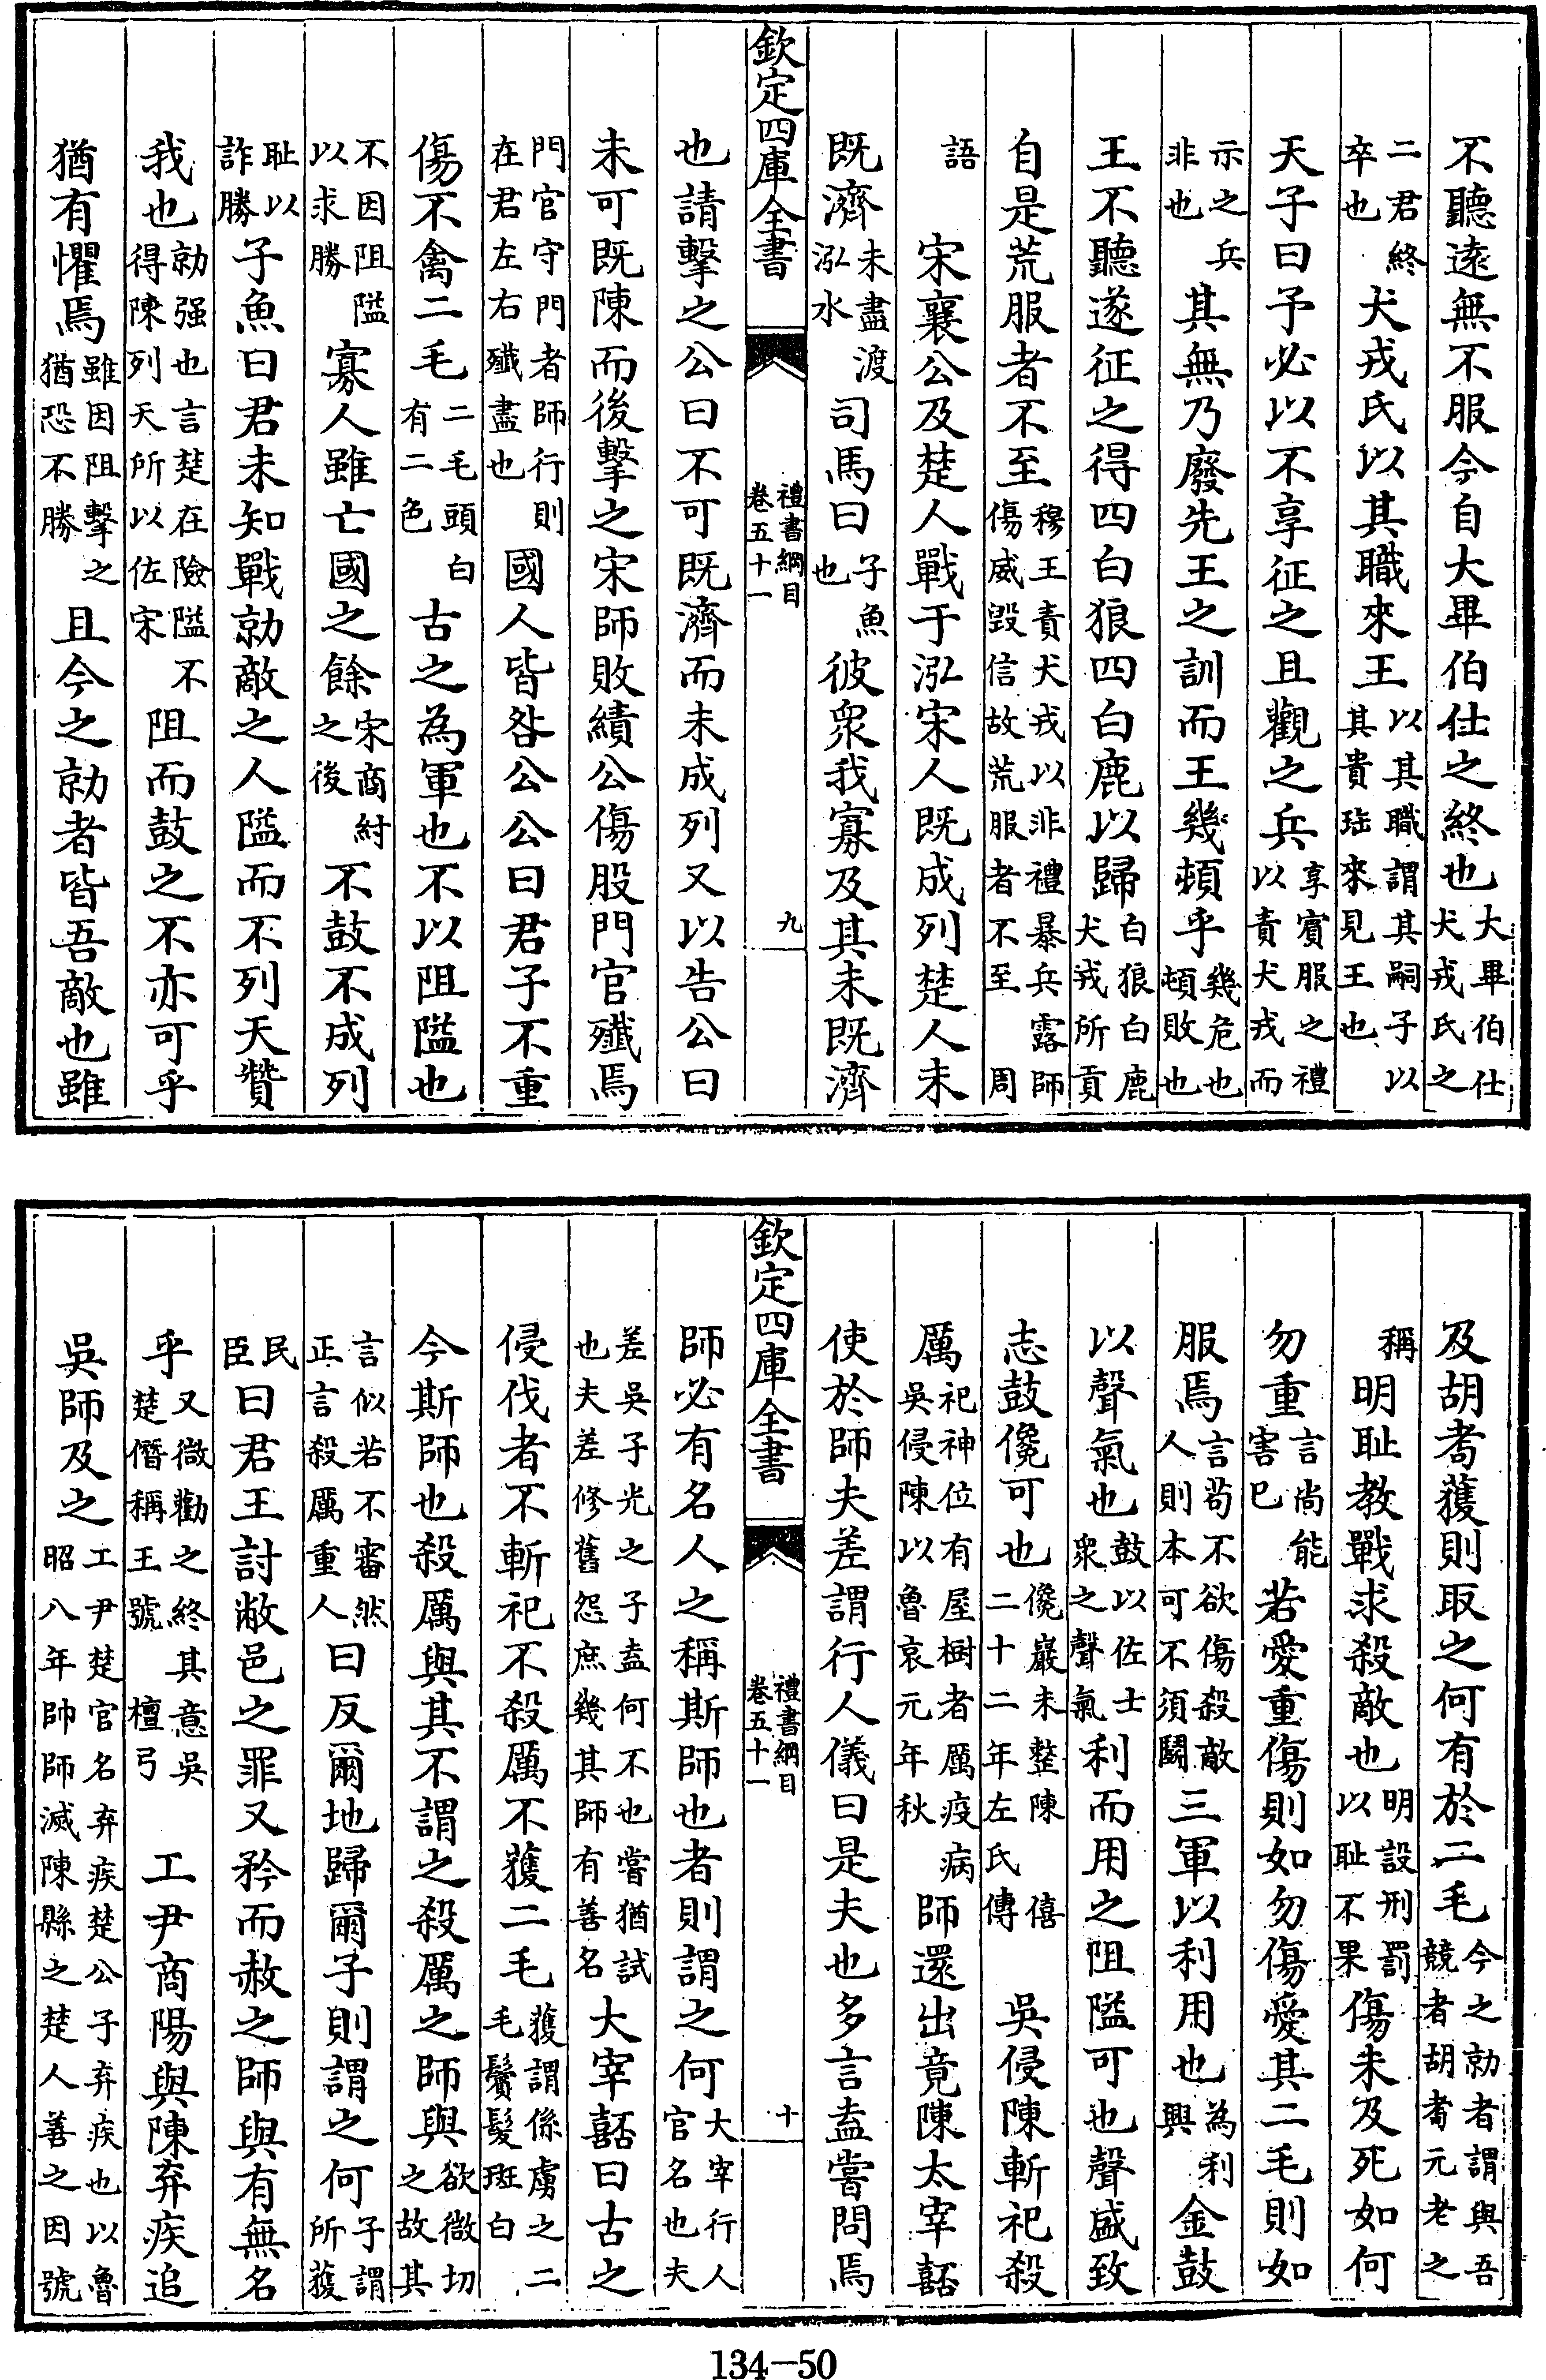 不聽遠無不服今自大畢伯仕之終也大畢伯仕犬戎氏之
二君終卒也犬戎氏以其職來王以其職謂其嗣子以其貴珤來見王也
天子曰予必以不享征之且觀之兵享賓服之禮以責犬戎而
示之兵非也其無乃廢先王之訓而王幾頓乎幾危也頓敗也
王不聽遂征之得四白狼四白鹿以歸白狼白鹿犬戎所貢
自是荒服者不至穆王責犬戎以非禮暴兵露師傷威毀信故荒服者不至 周
語 宋襄公及楚人戰于泓宋人既成列楚人未
既濟未盡渡泓水司馬曰子魚也彼衆我寡及其未既濟
欽定四庫全書 禮書綱目卷五十一 九
也請擊之公曰不可既濟而未成列又以告公曰
未可既陳而後擊之宋師敗績公傷股門官殱焉
門官守門者師行則在君左右殱盡也國人皆咎公公曰君子不重
傷不禽二毛二毛頭白有二色古之為軍也不以阻隘也
不因阻隘以求勝寡人雖亡國之餘宋商紂之後不鼓不成列
耻以詐勝子魚曰君未知戰勍敵之人隘而不列天贊
我也勍强也言楚在險隘不得陳列天所以佐宋阻而鼓之不亦可乎
猶有懼焉雖因阻擊之猶恐不勝且今之勍者皆吾敵也雖
及胡耇獲則取之何有於二毛今之勍者謂與吾競者胡耇元老之
稱明耻教戰求殺敵也明設刑罰以耻不果傷未及死如何
勿重言尚能害已若愛重傷則如勿傷愛其二毛則如
服焉言苟不欲傷殺敵人則本可不須鬭三軍以利用也為利興金鼓
以聲氣也鼓以佐士衆之聲氣利而用之阻隘可也聲盛致
志鼓儳可也儳巖未整陳 僖二十二年左氏傳 吳侵陳斬祀殺
厲祀神位有屋樹者厲疫病吳侵陳以魯哀元年秋師還出竟陳太宰嚭
使於師夫差謂行人儀曰是夫也多言盍嘗問焉
欽定四庫全書 禮書綱目卷五十一 十
師必有名人之稱斯師也者則謂之何大宰行人官名也夫
差吳子光之子盍何不也嘗猶試也夫差修舊怨庶幾其師有善名大宰嚭曰古之
侵伐者不斬祀不殺厲不獲二毛獲謂係虜之二毛鬢髮斑白
今斯師也殺厲與其不謂之殺厲之師與欲微切之故其
言似若不審然正言殺厲重人曰反爾地歸爾子則謂之何子謂所獲
民臣曰君王討敝邑之罪又矜而赦之師與有無名
乎又微勸之終其意吳楚僭稱王號 檀弓 工尹商陽與陳弃疾追
吳師及之工尹楚官名弃疾楚公子弃疾也以魯昭八年帥師滅陳縣之楚人善之因號
134—50